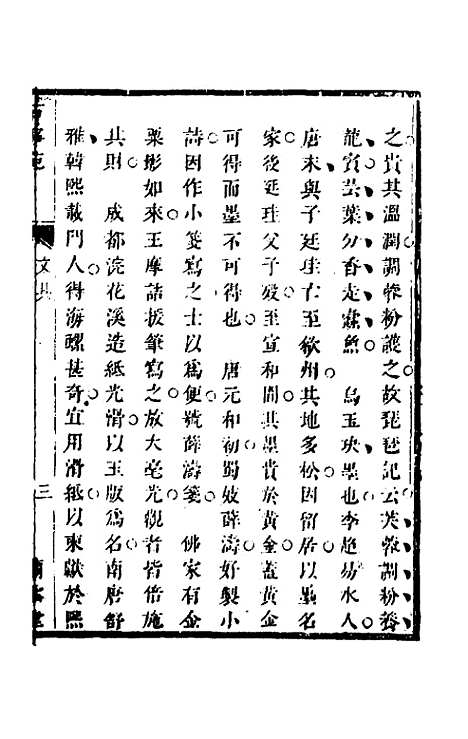 之貴其溫潤調蓉粉護之故琵琶記云芙蓉調粉養
龍賓芸葉分香走蠹魚　烏玉玦墨也李超易水人
唐末與子廷珪亡至歙州其地多松因留居以墨名
家後廷珪父子歿至宣和間其墨貴於黃金蓋黃金
可得而墨不可得也　唐元和初蜀妓薛濤好製小
詩因作小箋寫之士以爲便號薛濤箋　佛家有金
粟影如來王摩詰援筆寫之放大毫光觀者皆倍施
共財　成都浣花溪造紙光滑以玉版爲名南唐舒
雅韓熙載門人得海螺甚奇宜用滑紙以柬獻於熙
文具
三